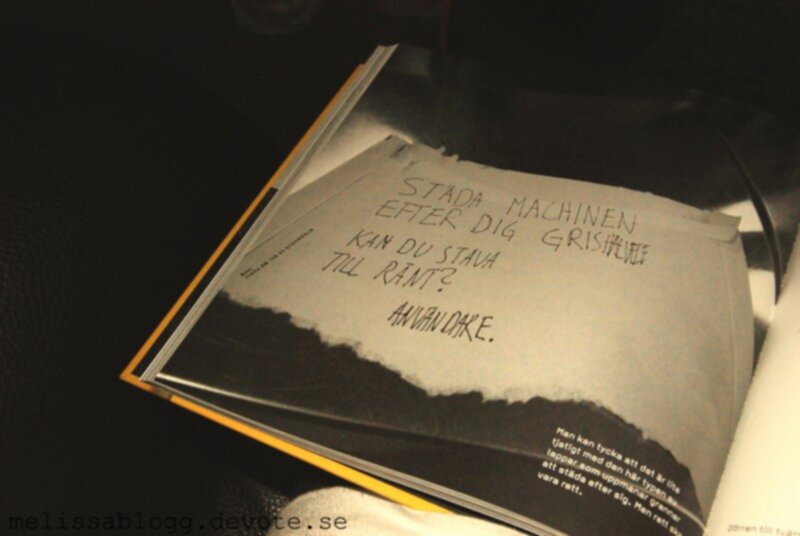 STÄDA MACHINEN
EFTER DIG GRISHELVETE
KAN DU STAVA
TILL RÄNT?
ANVÄNDARE.
Man kan tycka att det är lite
tjatigt med den här typen av
lappar som uppmanar grannar
att städa efter sig. Men rätt ska
vara rätt.
till
melissablogg.devote.se